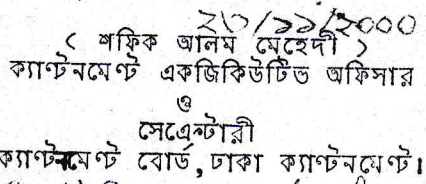 ২৩/১১/২০০০
( শফিক আলম মেহেদী )
ক্যাণ্টনমেণ্ট একজিকিউটিভ অফিসার
ও
সেক্রেটারী
ক্যাণ্টনমেণ্ট বোর্ড, ঢাকা ক্যাণ্টনমেণ্ট।